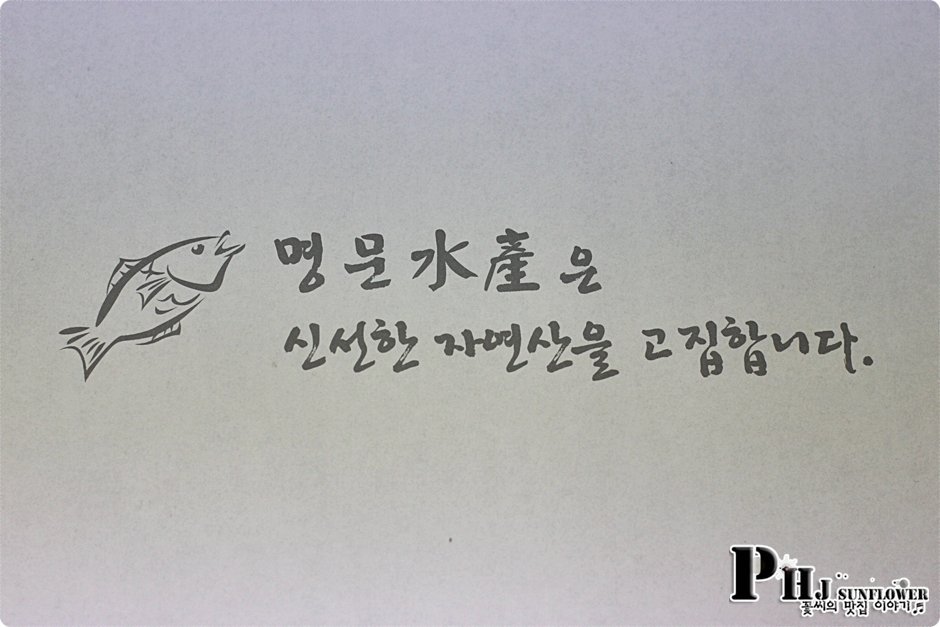 명문水産은
신선한 자연산을 고집합니다.
PHJ SUNFLOWER
꽃씨의 맛집 이야기♬